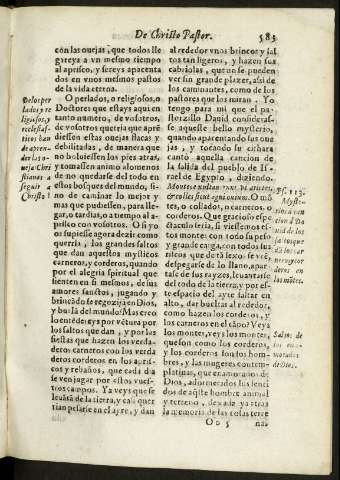 De Christo Pastor. 583
con las ouejas, que todos lle
gueys a vn mesmo tiempo
al aprisco, y sereys apacenta
dos en vnos mesmos pastos
de la vida eterna.
O perlados, o religiosos, o
Doctores que estays aqui en
tanto numero, de vosotros,
de vosotros queria que apré
diessen estas ouejas flacas y
debilitadas, de manera que
no boluiessen los pies atras,
y tomassen animo alomenos
de no quedarse del todo en
estos bosques del mundo, si-
no de caminar lo mejor y
mas que pudiessen, para lle-
gar, o tardias, o a tiempo al a-
prisco con vosotros. O si yo
os pusiesse agora delante, y
querria, los grandes saltos
que dan aquellos mysticos
carneros, y corderos, quando
por el alegria spiritual que
tienen en si mesmos, de sus
amores sanctos, jugando y
brincádo se regozijá en Dios,
y burlá del mundo! Mas creo
lo entédereys por vétura por
los saltos que dan, y por las
fiestas que hazen los verda-
deros carneros con los verda
deros corderos en los apris-
cos y rebaños, que cada dia
se ven jugar por estos vues-
tros campos. Ya veys que se
leuátá de la tierra, y casi quer
rian pesarse en el ayre, y dan
Delos per
lados y re
ligiosos, y
ecclesias-
ticos han
de apren-
der las o-
uejas Chri
stianas a
seguir a
Christo
al rededor vnos brincos y sal
tos tan ligeros, y hazen sus
cabriolas, que no se pueden
ver sin grande plazer, assi de
los caminantes, como de los
pastores que los miran. Yo
tengo para mi que el pa-
storzillo Dauid consideras-
se aqueste bello mysterio,
quando apacentando sus oue
jas, y tocando su cithara
cantò aquella cancion de
la salida del pueblo de Is-
rael de Egypto, diziendo.
Montes exultastis sicut arietes,
& colles sicut agni ouium. O mó-
tes, o collados, o carneros, o
corderos. Que gracioso espe-
ctaculo seria, si viessemos es-
tos montes con todo su peso
y grande carga, con todos sus
riscos que de tà sexo se vee,
despegarse de lo llano, apar-
tarse de sus rayzes, leuantarse
del todo de la tierra, y por es-
te espacio del ayre saltar en
alto, dar bueltas al rededor,
como hazen los corderos, y
los carneros en el càpo? Veys
los montes, veys los montes, que
son como los carneros,
y como los corderos son los hom-
bres, y las mugeres contem-
platiuas, que enamorados de
Dios, adormecidos sus senti
dos de aqste hombre animal
y terreno, dexada ya atras
la memoria de las cosas terre
Ps. 113.
Myste-
riosa can
cion d̃ Da
uid de los
ja tosque
dà los car
neros y cor
deros en
los mótes.
Saltos de
los ena-
morados
de Dios.
Oo 5 nas,